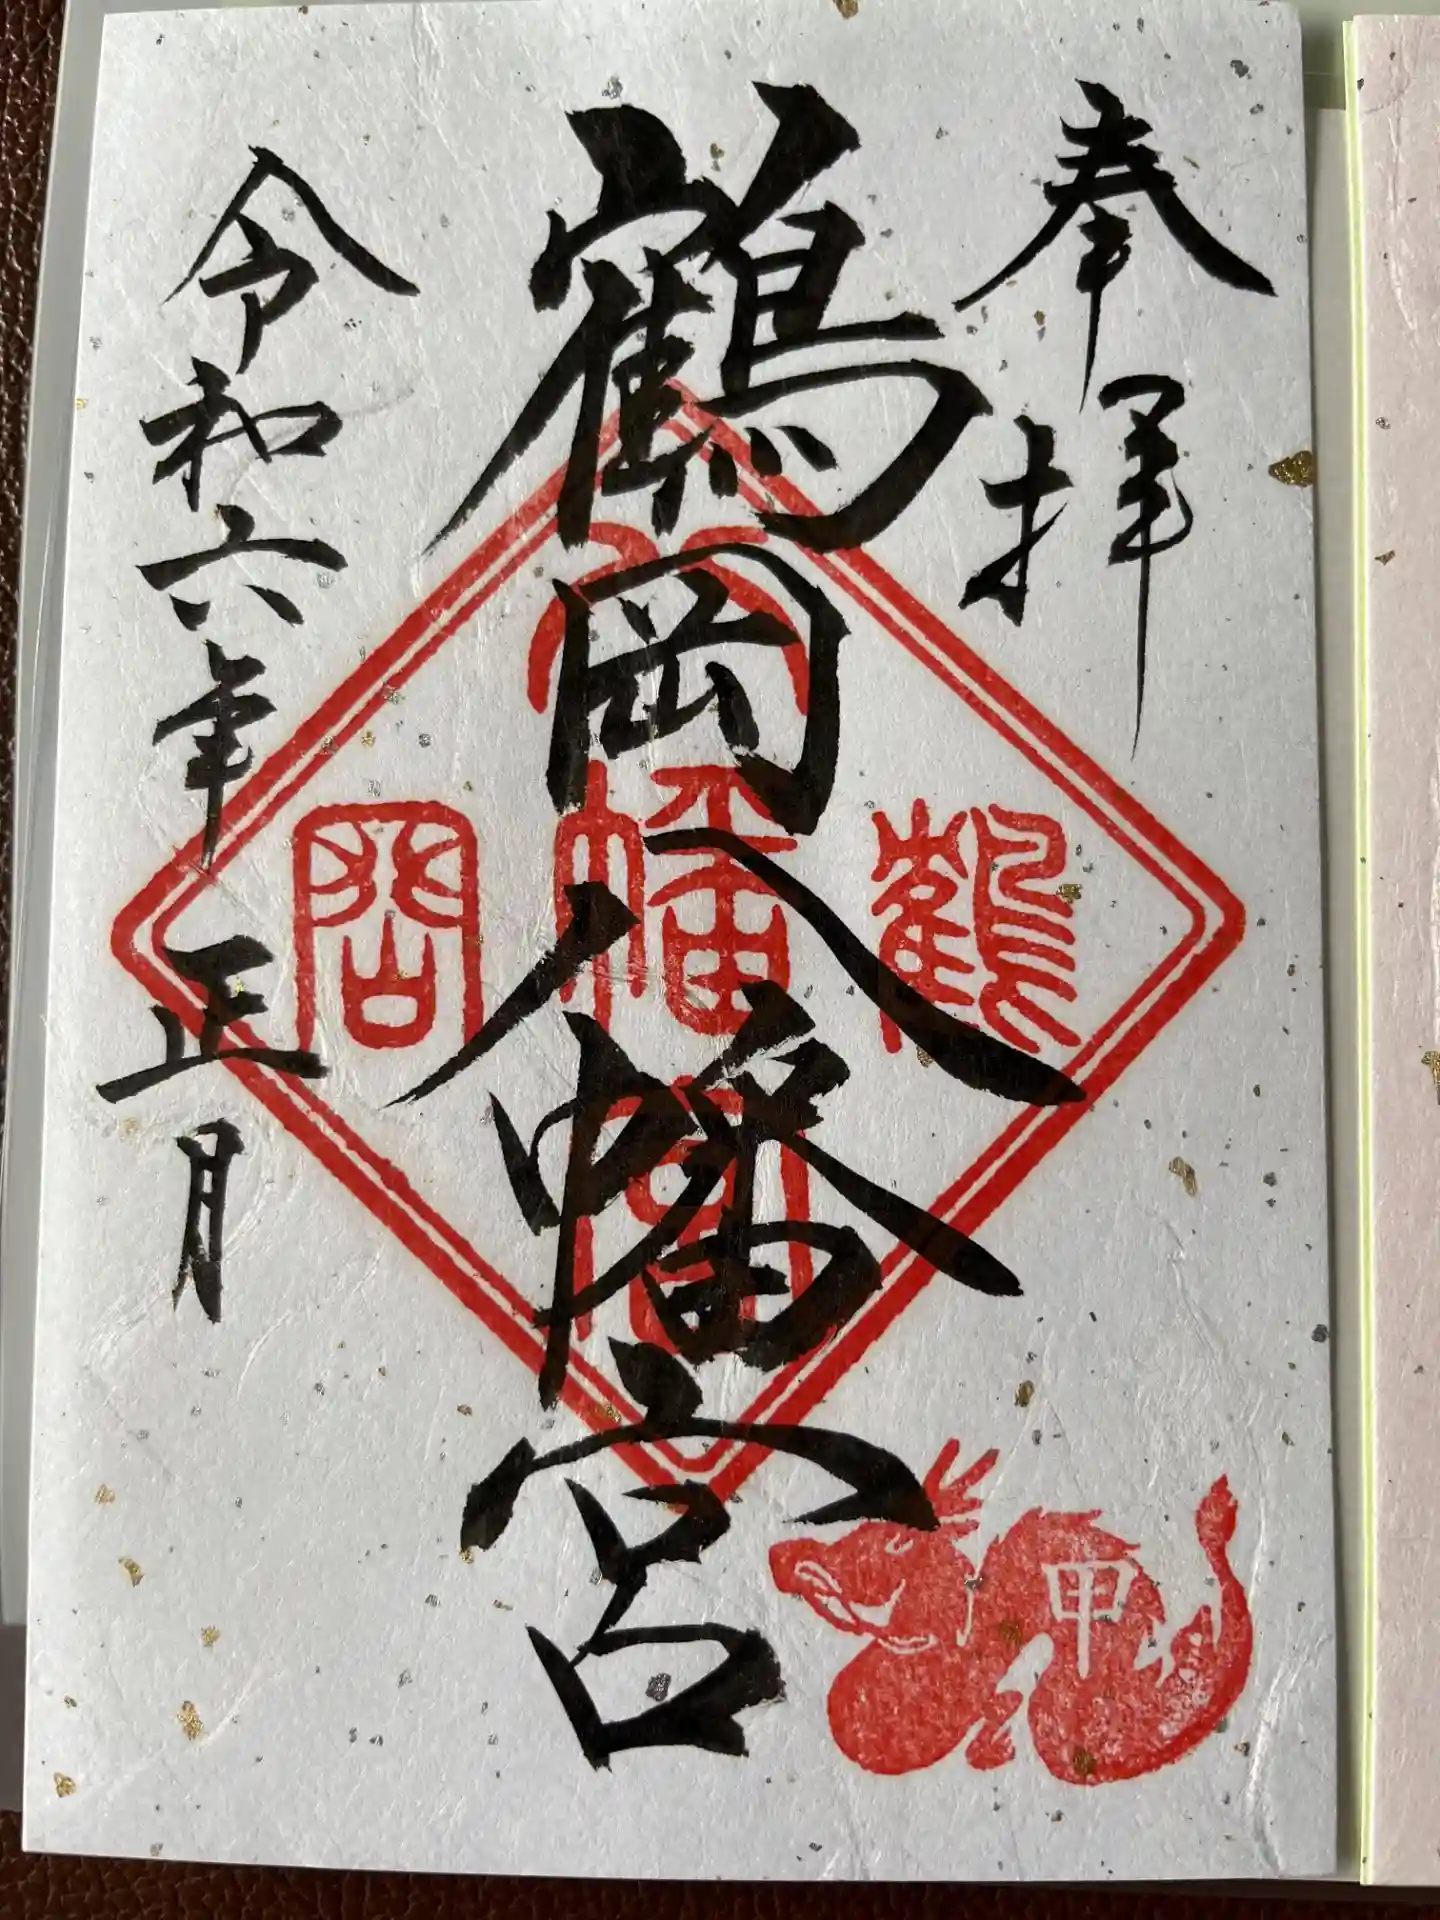 奉拝
鶴岡八幡宮
令和六年正月
八
鶴幡岡
宮
甲